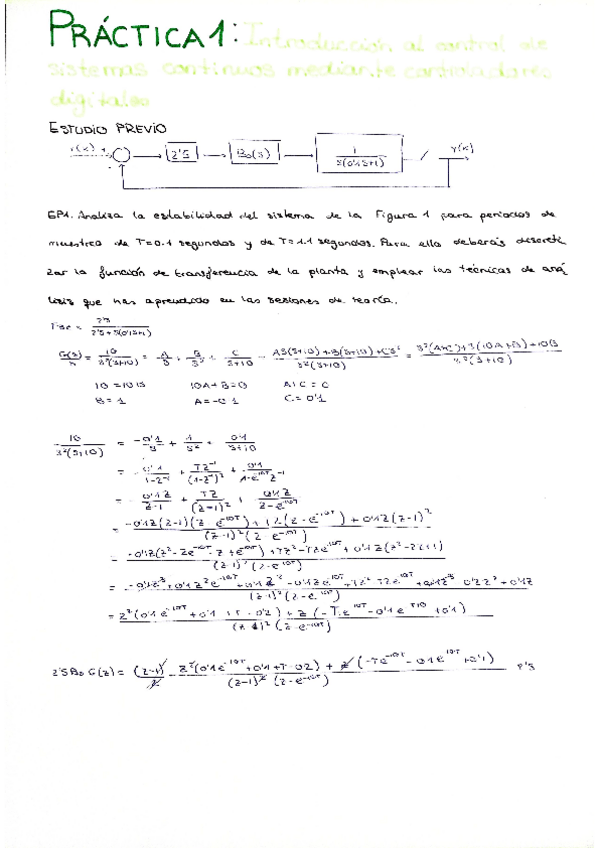 PRÁCTICA 1: Introducción al control de
sistemas continuos mediante controladores
digitales
ESTUDIO PREVIO
r(k) + 2'5 B₀(s) 1/(s(0'1s+1)) y(k)
EP1. Analiza la estabilidad del sistema de la Figura 1 para periodos de
muestreo de T=0.1 segundos y de T=1.1 segundos. Para ello deberás discreti
zar la función de transferencia de la planta y emplear las técnicas de aná
lisis que has aprendido en las sesiones de teoría.
= 2'5/(2'5+s(0'1s+1))
G(s)/s = 10/(s²(s+10)) = A/s + B/s² + C/(s+10) = (AS(s+10)+B(s+10)+Cs²)/(s²(s+10)) = (s²(A+C)+s(10A+B)+10B)/(s²(s+10))
10=10B 10A+B=0 A+C=0
B=1 A=-0'1 C=0'1
10/(s²(s+10)) = -0'1/s + 1/s² + 0'1/(s+10)
= -0'1/(1-z⁻¹) + Tz⁻¹/(1-z⁻¹)² + 0'1/(1-e⁻¹⁰ᵀz⁻¹)
= -0'1z/(z-1) + Tz/(z-1)² + 0'1z/(z-e⁻¹⁰ᵀ)
= (-0'1z(z-1)(z-e⁻¹⁰ᵀ)+Tz(z-e⁻¹⁰ᵀ)+0'1z(z-1)²)/((z-1)²(z-e⁻¹⁰ᵀ))
= (-0'1z(z²-ze⁻¹⁰ᵀ-z+e⁻¹⁰ᵀ)+Tz²-Tze⁻¹⁰ᵀ+0'1z(z²-2z+1))/((z-1)²(z-e⁻¹⁰ᵀ))
= (-0'1z³+0'1z²e⁻¹⁰ᵀ+0'1z²-0'1ze⁻¹⁰ᵀ+Tz²-Tze⁻¹⁰ᵀ+0'1z³-0'2z²+0'1z)/((z-1)²(z-e⁻¹⁰ᵀ))
= (z²(0'1e⁻¹⁰ᵀ+0'1+T-0'2)+z(-Te⁻¹⁰ᵀ-0'1e⁻¹⁰ᵀ+0'1))/((z-1)²(z-e⁻¹⁰ᵀ))
2'5B₀G(z) = (z-1)/z · (z²(0'1e⁻¹⁰ᵀ+0'1+T-0'2)+z(-Te⁻¹⁰ᵀ-0'1e⁻¹⁰ᵀ+0'1))/((z-1)²(z-e⁻¹⁰ᵀ))